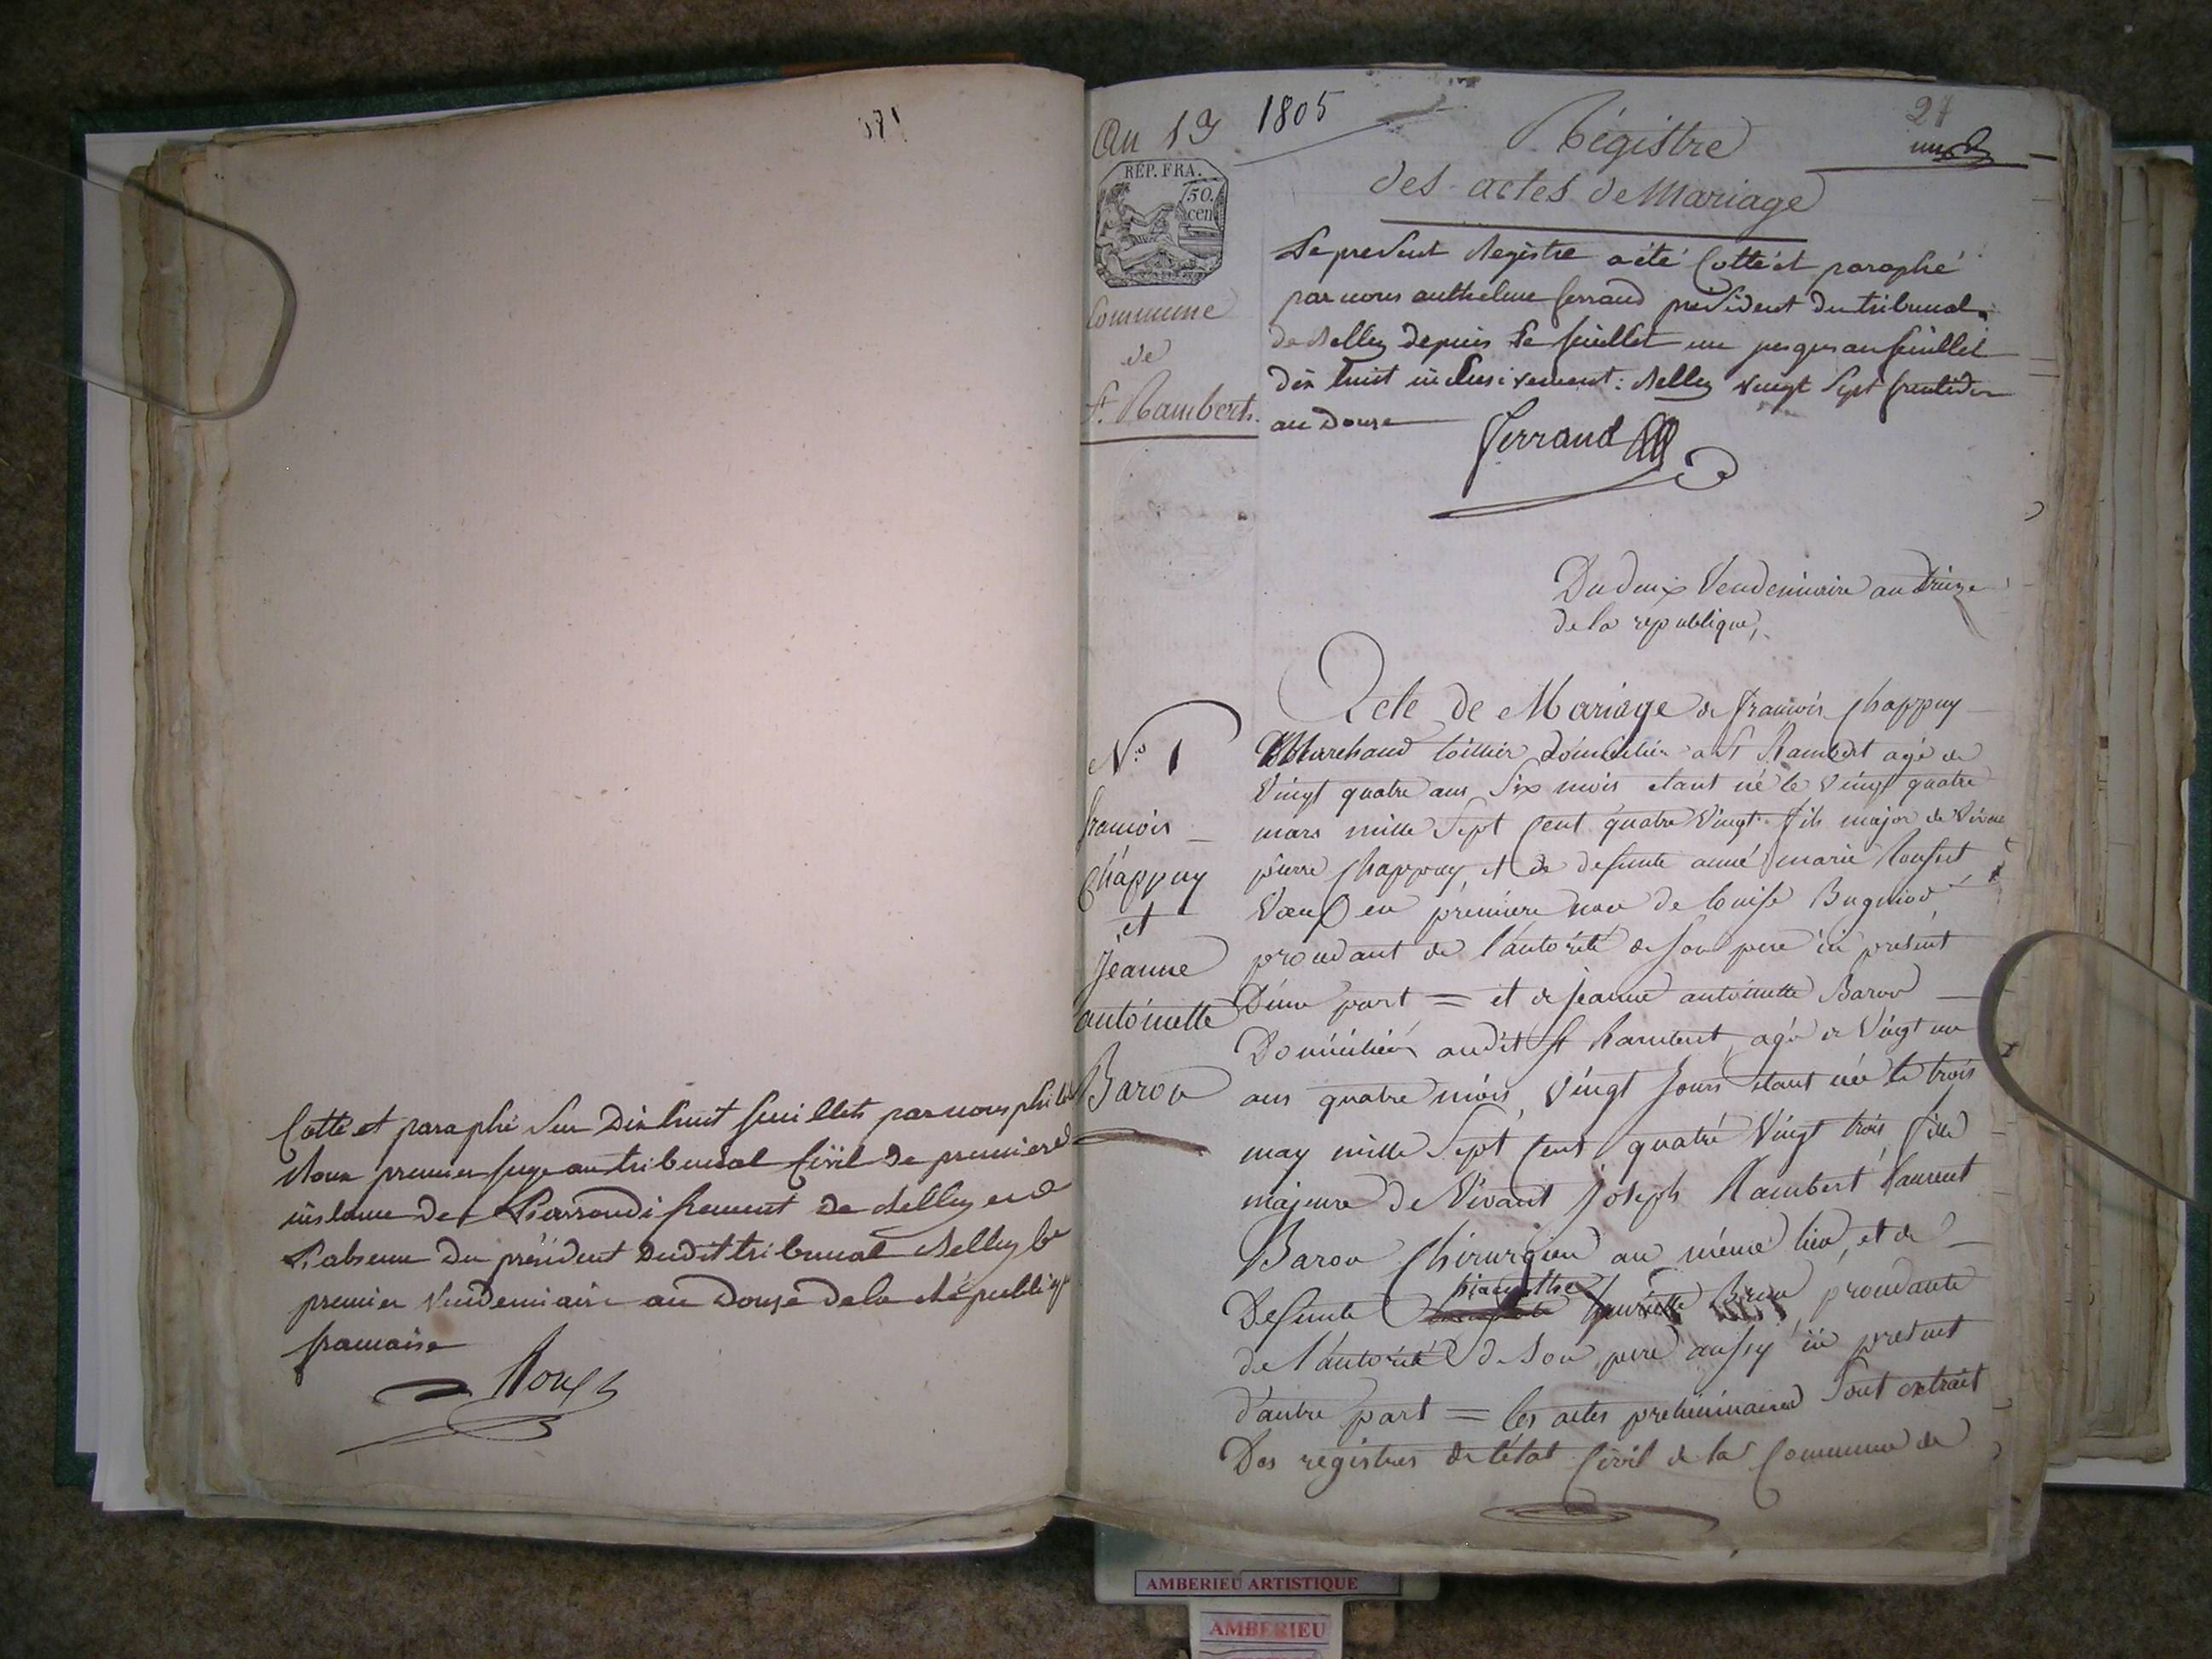 Cotté et paraphé Sur Dix huit feuillets par nous
Roux premier juge au tribunal Civil de premiere
instance de L'arrondissement de Belley en
L'absence Du président dudit tribunal Belley le
premier Vendemiaire an Douze dela République
francaise
Roux
An 13 1805
RÉP. FRA.
50.
cen
Commune
de
St. Rambert.
27
un
Régistre
des actes de Mariage
Le present Registre a été Cotté et paraphé
par nous anthelme ferrand président du tribunal
de Belley depuis Le feuillet un jusques au feuillet
dix huit inclusivement: Belley vingt Sept fructidor
an Douze
ferrand
Du deux Vendemiaire an treize
de la republique,
N.o 1
francois
Chappuy
et
Jeanne
antoinette
Baron
Acte de Mariage de francois Chappuy
Marchand toillier domicilié a St Rambert agé de
Vingt quatre ans Six mois etant né le Vingt quatre
mars mille Sept Cent quatre Vingt fils major de Vivant
pierre Chappuy et de defunte anne marie
Veuf en premiere noce de louise Bugniod
procédant de l'autorité de son pere ici présent
D'une part = et de jeanne antoinette Baron
Domiciliée audit St Rambert, agée de Vingt un
ans quatre mois Vingt Jours etant née le trois
may mille Sept Cent quatre Vingt trois fille
majeure de Vivant Joseph Rambert Laurent
Baron Chirurgien au même lieu, et de
Defunte hiacinthe procedante
de l'autorité de son pere aussy ici présent
d'autre part = les actes preliminaires Sont extrait
Des registres de l'état Civil de la Commune de
AMBERIEU ARTISTIQUE
AMBERIEU